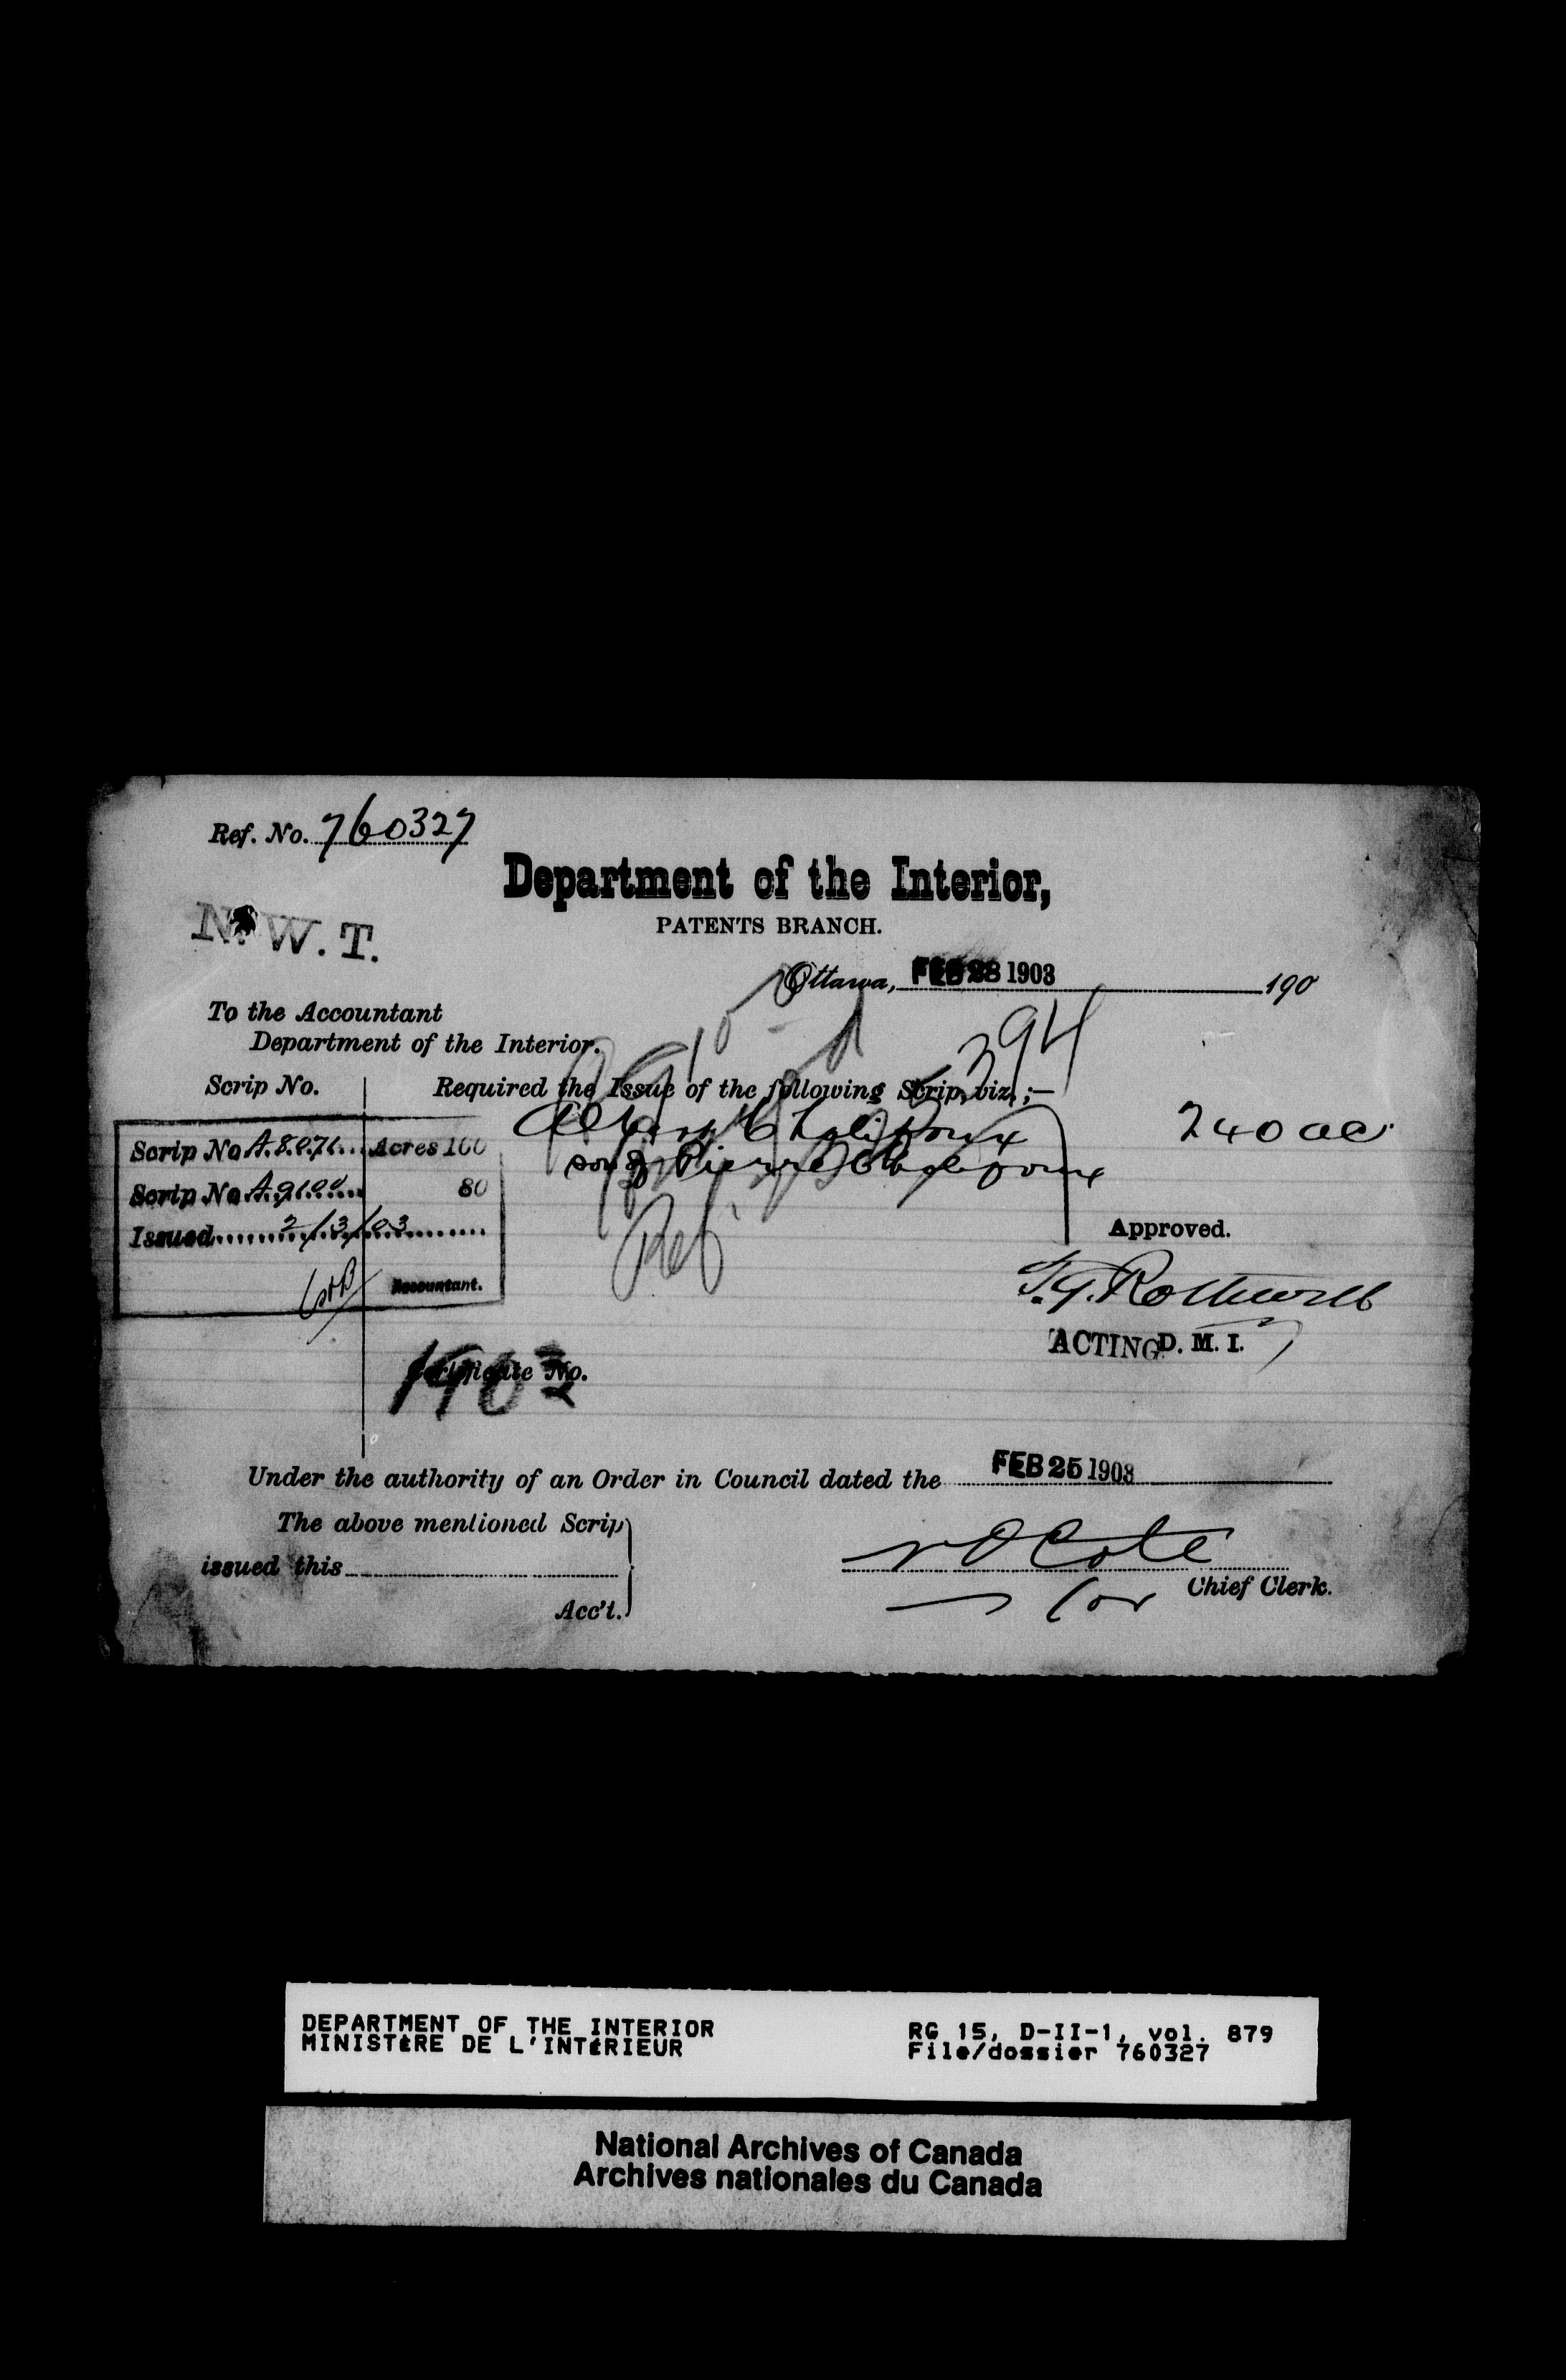 Ref. No. 760327
Department of the Interior,
PATENTS BRANCH.
N.W.T.
Ottawa, FEB 28 1903 190
To the Accountant
Department of the Interior.
Scrip No.
Required the Issue of the following Scrip, viz.;—
394
Albert Chalifoux 240 ac
son of Pierre Chalifoux
Scrip No A.8071 Acres 160
Scrip No A9100 80
Issued 2/3/03
Accountant.
Ref
Approved.
T.G. Rothwell
ACTING D. M. I.
Certificate No.
1903
Under the authority of an Order in Council dated the FEB 25 1903
The above mentioned Scrip
issued this
Acc't.
N O Cote
for Chief Clerk.
DEPARTMENT OF THE INTERIOR
MINISTÈRE DE L'INTÉRIEUR
RG 15, D-II-1, vol. 879
File/dossier 760327
National Archives of Canada
Archives nationales du Canada